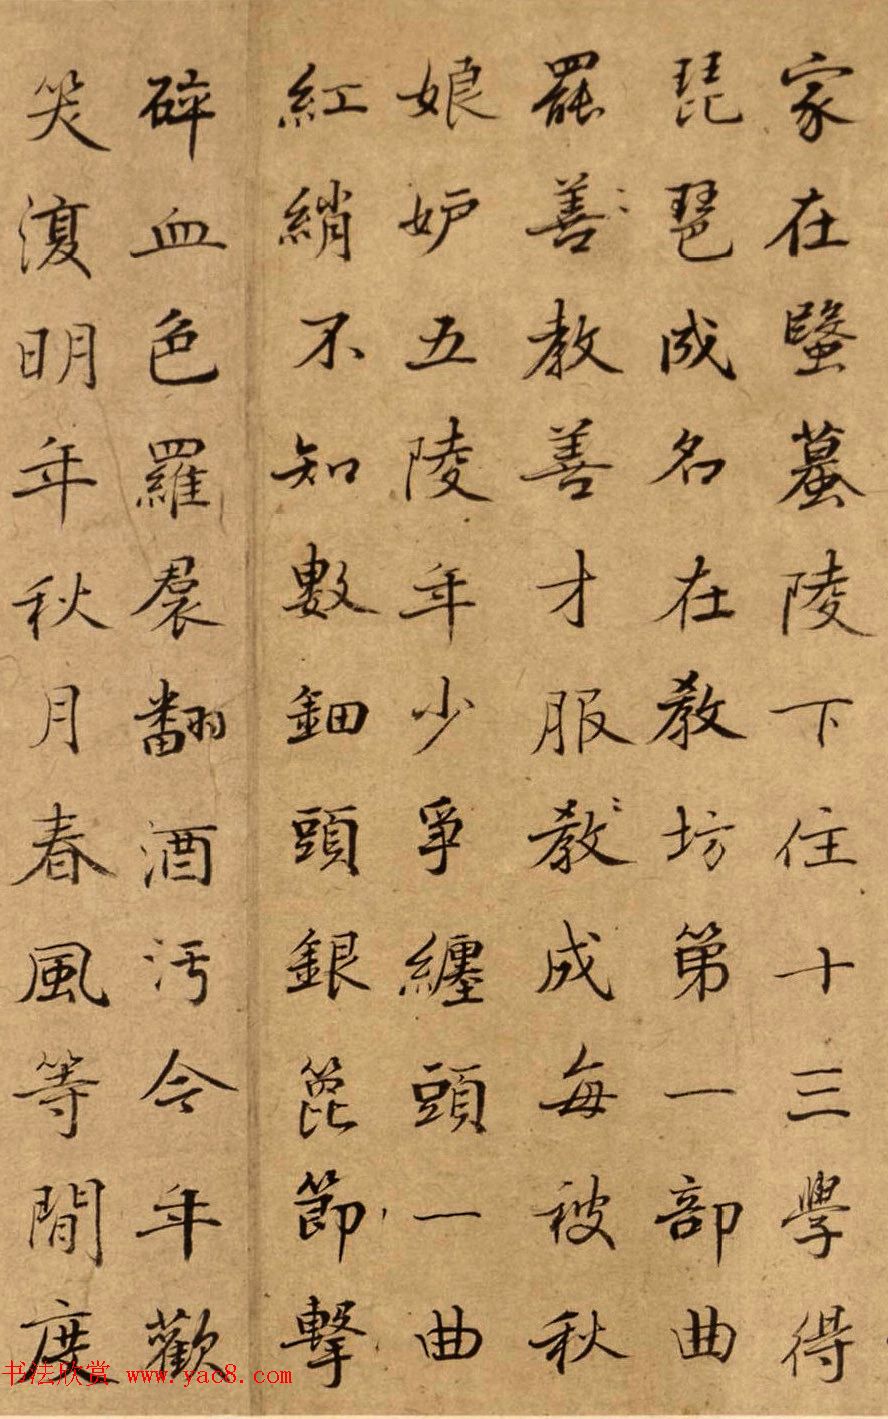 家在蝦蟇陵下住十三學得
琵琶成名在教坊第一部曲
罷善教善才服教成每被秋
娘妒五陵年少爭纏頭一曲
紅綃不知數鈿頭銀篦節擊
碎血色羅裠翻酒污今年歡
笑復明年秋月春風等閒度
书法欣赏 www.yac8.com